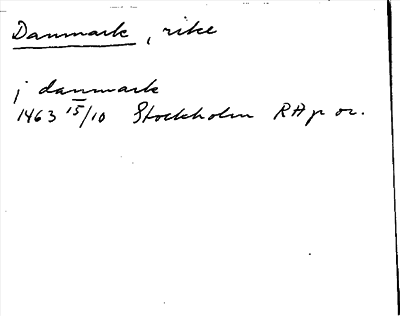 Danmark, rike
j danmark
1463 15/10 Stockholm RA p or.